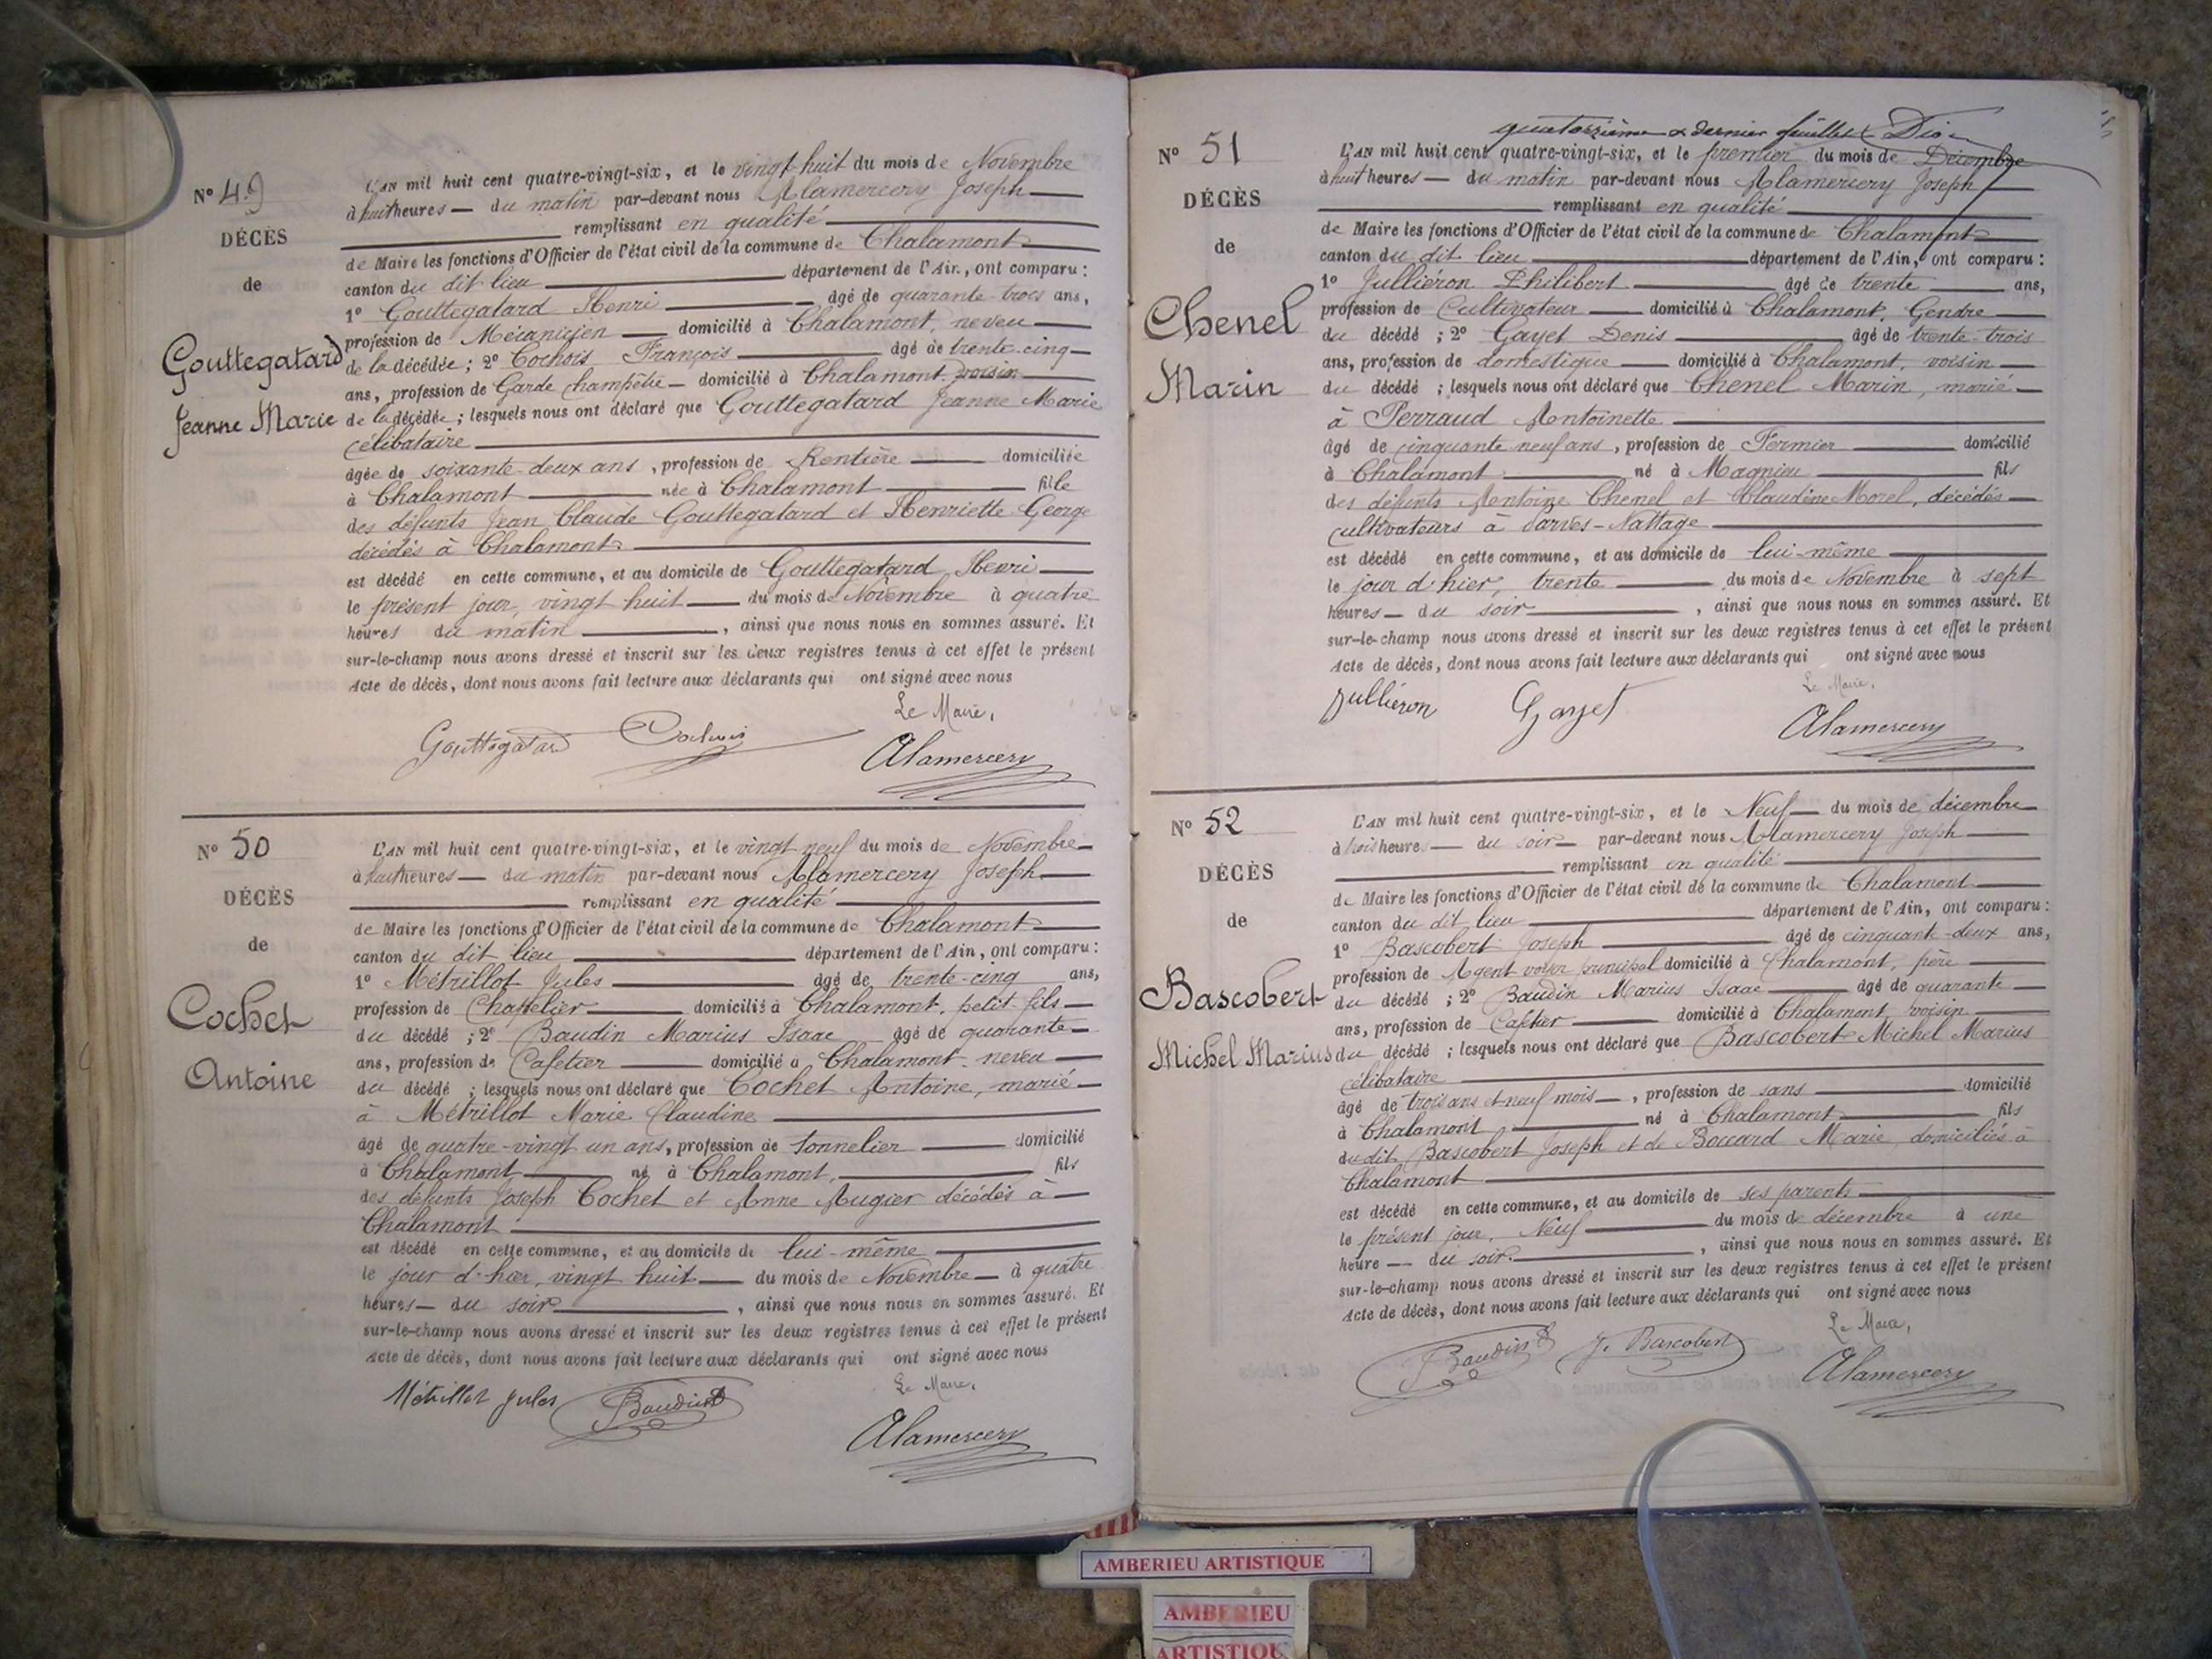 N° 49
DÉCÈS
de
Gouttegatard
Jeanne Marie
L'AN mil huit cent quatre-vingt-six, et le vingt huit du mois de Novembre
à huit heures — du matin par-devant nous Alamercery Joseph
remplissant en qualité
de Maire les fonctions d'Officier de l'état civil de la commune de Chalamont
canton du dit lieu département de l'Ain, ont comparu :
1° Gouttegatard Henri âgé de quarante trois ans,
profession de Mécanicien domicilié à Chalamont, neveu
de la décédée ; 2° Cochois François âgé de trente-cinq
ans, profession de Garde champêtre domicilié à Chalamont, voisin
de la décédée ; lesquels nous ont déclaré que Gouttegatard Jeanne Marie
célibataire
âgée de soixante-deux ans, profession de Rentière domiciliée
à Chalamont née à Chalamont fille
des défunts Jean Claude Gouttegatard et Henriette George
décédés à Chalamont
est décédé en cette commune, et au domicile de Gouttegatard Henri
le présent jour, vingt huit du mois de Novembre à quatre
heures du matin, ainsi que nous nous en sommes assuré. Et
sur-le-champ nous avons dressé et inscrit sur les deux registres tenus à cet effet le présent
Acte de décès, dont nous avons fait lecture aux déclarants qui ont signé avec nous
Le Maire,
Gouttegatard Cochois
Alamercery
N° 50
DÉCÈS
de
Cochet
Antoine
L'AN mil huit cent quatre-vingt-six, et le vingt neuf du mois de Novembre
à huit heures — du matin par-devant nous Alamercery Joseph
remplissant en qualité
de Maire les fonctions d'Officier de l'état civil de la commune de Chalamont
canton du dit lieu département de l'Ain, ont comparu :
1° Métrillot Jules âgé de trente-cinq ans,
profession de Chapelier domicilié à Chalamont, petit-fils
du décédé ; 2° Baudin Marius Isaac âgé de quarante
ans, profession de Cafetier domicilié à Chalamont, neveu
du décédé ; lesquels nous ont déclaré que Cochet Antoine, marié
à Métrillot Marie Claudine
âgé de quatre-vingt un ans, profession de tonnelier domicilié
à Chalamont né à Chalamont, fils
des défunts Joseph Cochet et Anne Mugier décédés à
Chalamont
est décédé en cette commune, et au domicile de lui-même
le jour d'hier, vingt huit du mois de Novembre à quatre
heures — du soir, ainsi que nous nous en sommes assuré. Et
sur-le-champ nous avons dressé et inscrit sur les deux registres tenus à cet effet le présent
Acte de décès, dont nous avons fait lecture aux déclarants qui ont signé avec nous
Le Maire,
Métrillot Jules Baudin
Alamercery
quatorzième & dernier feuillet
N° 51
DÉCÈS
de
Chenel
Marin
L'AN mil huit cent quatre-vingt-six, et le premier du mois de Décembre
à huit heures — du matin par-devant nous Alamercery Joseph
remplissant en qualité
de Maire les fonctions d'Officier de l'état civil de la commune de Chalamont
canton du dit lieu département de l'Ain, ont comparu :
1° Julliéron Philibert âgé de trente ans,
profession de Cultivateur domicilié à Chalamont, Gendre
du décédé ; 2° Gayet Denis âgé de trente-trois
ans, profession de domestique domicilié à Chalamont, voisin
du décédé ; lesquels nous ont déclaré que Chenel Marin, marié
à Perraud Antoinette
âgé de cinquante neuf ans, profession de Fermier domicilié
à Chalamont né à Magnieu fils
des défunts Antoine Chenel et Claudine Morel, décédés
cultivateurs à Parves-Nattage
est décédé en cette commune, et au domicile de lui-même
le jour d'hier, trente du mois de Novembre à sept
heures — du soir, ainsi que nous nous en sommes assuré. Et
sur-le-champ nous avons dressé et inscrit sur les deux registres tenus à cet effet le présent
Acte de décès, dont nous avons fait lecture aux déclarants qui ont signé avec nous
Le Maire,
Julliéron Gayet
Alamercery
N° 52
DÉCÈS
de
Bascobert
Michel Marius
L'AN mil huit cent quatre-vingt-six, et le Neuf du mois de décembre
à trois heures — du soir par-devant nous Alamercery Joseph
remplissant en qualité
de Maire les fonctions d'Officier de l'état civil de la commune de Chalamont
canton du dit lieu département de l'Ain, ont comparu :
1° Bascobert Joseph âgé de cinquante-deux ans,
profession de Agent voyer principal domicilié à Chalamont, père
du décédé ; 2° Baudin Marius Isaac âgé de quarante
ans, profession de Cafetier domicilié à Chalamont, voisin
du décédé ; lesquels nous ont déclaré que Bascobert Michel Marius
célibataire
âgé de trois ans et neuf mois, profession de sans domicilié
à Chalamont né à Chalamont fils
du dit Bascobert Joseph et de Boccard Marie, domiciliés à
Chalamont
est décédé en cette commune, et au domicile de ses parents
le présent jour, Neuf du mois de décembre à une
heure — du soir, ainsi que nous nous en sommes assuré. Et
sur-le-champ nous avons dressé et inscrit sur les deux registres tenus à cet effet le présent
Acte de décès, dont nous avons fait lecture aux déclarants qui ont signé avec nous
Le Maire,
Baudin J. Bascobert
Alamercery
AMBERIEU ARTISTIQUE
AMBERIEU
ARTISTIQUE